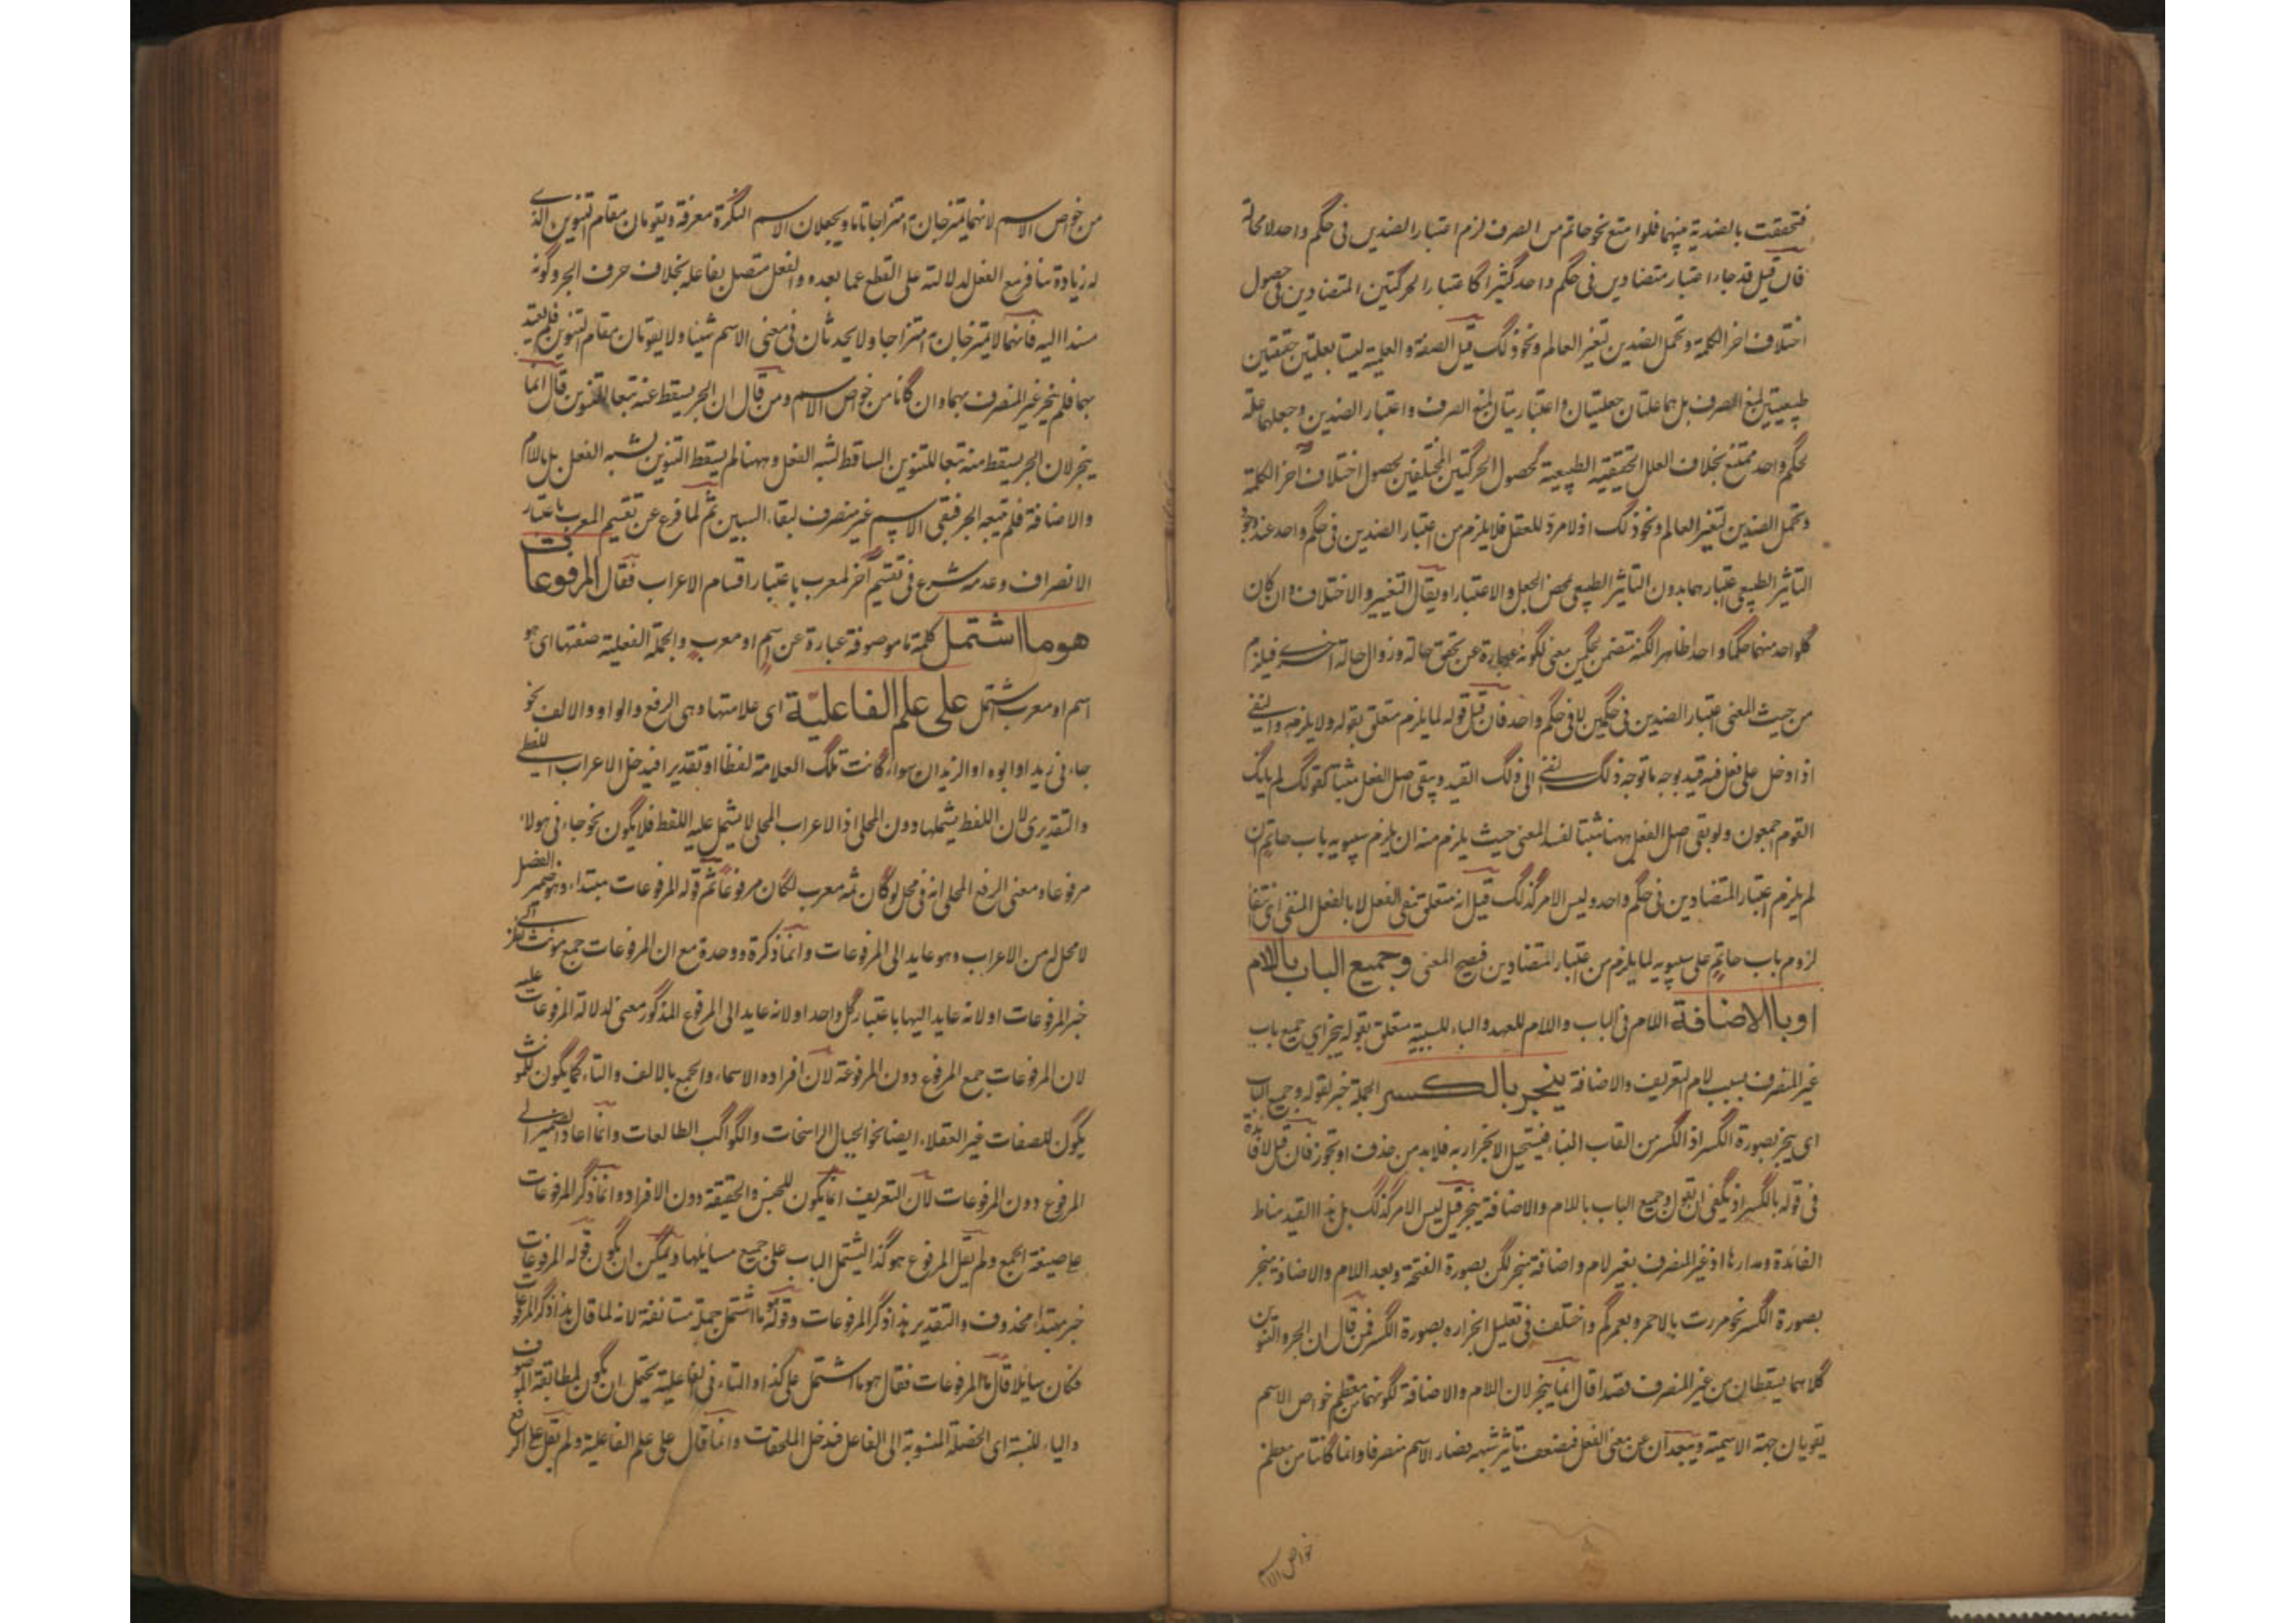 فتحققت بالضدية بينهما فلو امتنع نحو حاتم من الصرف لزم اعتبار الضدين فى حكم واحد لا محالة
فان قيل قد جاء اعتبار متضادين فى حكم واحد كثيرا كاعتبار الحركتين المتضادين فى حصول
اختلاف اخر الكلمة وتحمل الضدين لتغير العالم ونحو ذلك قيل الصفة والعلمية ليستا بعلتين حقيقتين
طبيعيتين لمنع الصرف بل هما علتان جعليتان واعتباريتان لمنع الصرف واعتبار الضدين وجعلهما علة
لحكم واحد ممتنع بخلاف العلل الحقيقية الطبيعية كحصول الحركتين المختلفين لحصول اختلاف اخر الكلمة
وتحمل الضدين لتغير العالم ونحو ذلك اذ لا مرد للعقل فلا يلزم من اعتبار الضدين فى حكم واحد عند وجود
التاثير الطبيعى اعتبارهما بدون التاثير الطبيعى بمحض الجعل والاعتبار او يقال التغيير والاختلاف وان كان
كلواحد منهما حكما واحدا ظاهرا لكنه متضمن بحكمين معنى لكونه عبارة عن تحقق حالة وزوال حالة اخرى فيلزم
من حيث المعنى اعتبار الضدين فى حكمين لا فى حكم واحد فان قيل قوله لما يلزم متعلق بقوله ولا يلزمه والنفى
اذا دخل على فعل فيه قيد بوجه ما توجه ذلك النفى الى ذلك القيد ويبقى اصل الفعل مثبتا كقولك لم ياتك
القوم اجمعون ولو بقى اصل الفعل ههنا مثبتا لفسد المعنى حيث يلزم منه ان يلزم سيبويه باب حاتم ان
لم يلزم اعتبار المتضادين فى حكم واحد وليس الامر كذلك قيل انه متعلق بنفى الفعل لا بالفعل المنفى اى انتفا
لزوم باب حاتم على سيبويه لما يلزم من اعتبار المتضادين فصح المعنى وجميع الباب باللام
او بالاضافة اللام فى الباب واللام للعهد والباء للسببية متعلق بقوله ينجر اى جميع باب
غير المنصرف بسبب لام التعريف والاضافة ينجر بالكسر الجملة خبر لقوله وجميع الباب
اى ينجر بصورة الكسر اذ الكسر من القاب البناء فيستحيل الانجرار به فلا بد من حذف او تجوز فان قيل لا فائدة
فى قوله بالكسر اذ يكفى ان يقول وجميع الباب باللام والاضافة ينجر قيل ليس الامر كذلك بل هذا القيد مناط
الفائدة ومدارها اذ غير المنصرف بغير لام واضافة ينجر لكن بصورة الفتحة وبعد اللام والاضافة ينجر
بصورة الكسر نحو مررت بالاحمر وبعمركم واختلف فى تعليل انجراره بصورة الكسر فمن قال ان الجر والتنوين
كلاهما يسقطان من غير المنصرف قصدا قال انما ينجر لان اللام والاضافة لكونهما من معظم خواص الاسم
يقويان جهة الاسمية ويبعدان عن معنى الفعل فيضعف تاثير شبهه فصار الاسم منصرفا وانما كانتا من معظم
خواص الاسم
من خواص الاسم لانهما يمتزجان امتزاجا تاما ويجعلان الاسم النكرة معرفة ويقومان مقام التنوين الذى
له زيادة تنافر مع الفعل لدلالته على القطع عما بعده والفعل متصل بفاعله بخلاف حرف الجر وكونه
مسندا اليه فانهما لا يمتزجان امتزاجا ولا يحدثان فى معنى الاسم شيئا ولا يقومان مقام التنوين فلم يعتد
بهما فلم ينجر غير المنصرف بهما وان كانا من خواص الاسم ومن قال ان الجر يسقط عنه تبعا للتنوين قال انما
ينجر لان الجر يسقط منه تبعا للتنوين الساقط لشبه الفعل وههنا لم يسقط التنوين لشبه الفعل بل باللام
والاضافة فلم يتبعه الجر فبقى الاسم غير منصرف لبقاء السببين ثم لما فرغ عن تقسيم المعرب باعتبار
الانصراف وعدمه شرع فى تقسيم اخر لمعرب باعتبار اقسام الاعراب فقال المرفوعات
هو ما اشتمل كلمة ما موصوفة عبارة عن اسم او معرب والجملة الفعلية صفتها اى هو
اسم او معرب اشتمل على علم الفاعلية اى علامتها وهى الرفع والواو والالف نحو
جاءنى زيد او ابوه او الزيدان سواء كانت تلك العلامة لفظا او تقديرا فيدخل الاعراب اللفظى
والتقديرى لان اللفظ يشملهما دون المحلى اذ الاعراب المحلى لا يشتمل عليه اللفظ فلا يكون نحو جاءنى هولاء
مرفوعا ومعنى الرفع المحلى انه فى محل لو كان ثمه معرب لكان مرفوعا ثم قوله المرفوعات مبتداء وهو ضمير الفصل
لا محل له من الاعراب وهو عايد الى المرفوعات وانما ذكره ووحده مع ان المرفوعات جمع مونث نظرا الى
خبر المرفوعات او لانه عايد اليها باعتبار كل واحد او لانه عايد الى المرفوع المذكور معنى لدلالة المرفوعات عليه
لان المرفوعات جمع المرفوع دون المرفوعة لان افراده الاسماء والجمع بالالف والتاء كما يكون للمونث
يكون للصفات غير العقلاء ايضا نحو الجبال الراسخات والكواكب الطالعات وانما اعاد الضمير الى
المرفوع دون المرفوعات لان التعريف انما يكون للجنس والحقيقة دون الافراد وانما ذكر المرفوعات
على صيغة الجمع ولم يقل المرفوع هو كذا ليشتمل الباب على جميع مسايلها ويمكن ان يكون قوله المرفوعات
خبر مبتداء محذوف والتقدير هذا ذكر المرفوعات وقوله هو ما اشتمل جملة مستانفة لانه لما قال هذا ذكر المرفوعات
فكان سايلا قال ما المرفوعات فقال هو ما اشتمل على كذا والتاء فى الفاعلية يحتمل ان يكون لمطابقة الموصوف
والياء للنسبة اى الخصلة المنسوبة الى الفاعل فيدخل الملحقات وانما قال على علم الفاعلية ولم يقل على الرفع